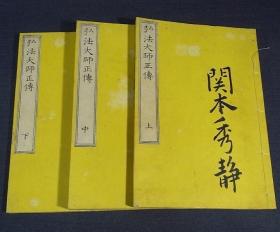 弘法大師正傳
上
関本秀静
弘法大師正傳
中
弘法大師正傳
下